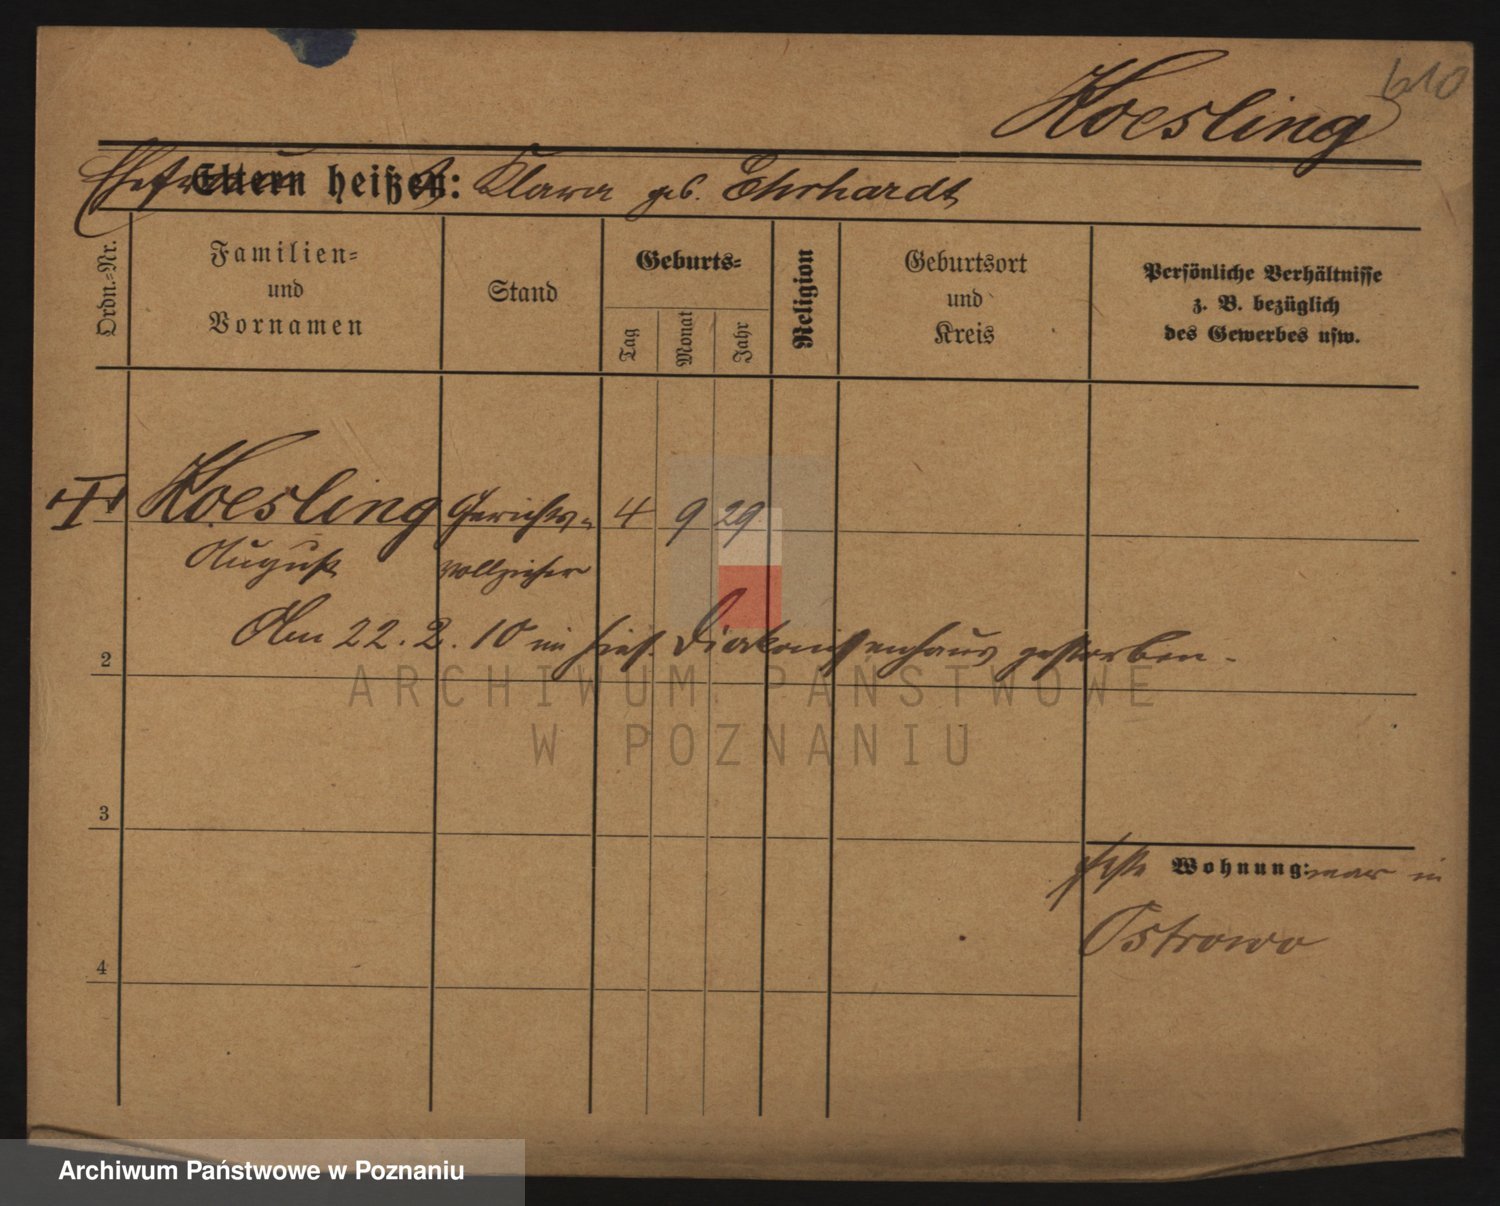 610
Koesling
Ehefrau Eltern heißt heißen: Klara geb. Ehrhardt
Ordn.-Nr.
Familien-
und
Vornamen
Stand
Geburts-
Tag
Monat
Jahr
Religion
Geburtsort
und
Kreis
Persönliche Verhältnisse
z. B. bezüglich
des Gewerbes usw.
Koesling Gerichts- 4 9 29
August vollzieher
Am 22. 2. 10 im hies. Diakonissenhaus gestorben.
2
3
Wohnung: war in
Ostrowo
4
ARCHIWUM PAŃSTWOWE
W POZNANIU
Archiwum Państwowe w Poznaniu